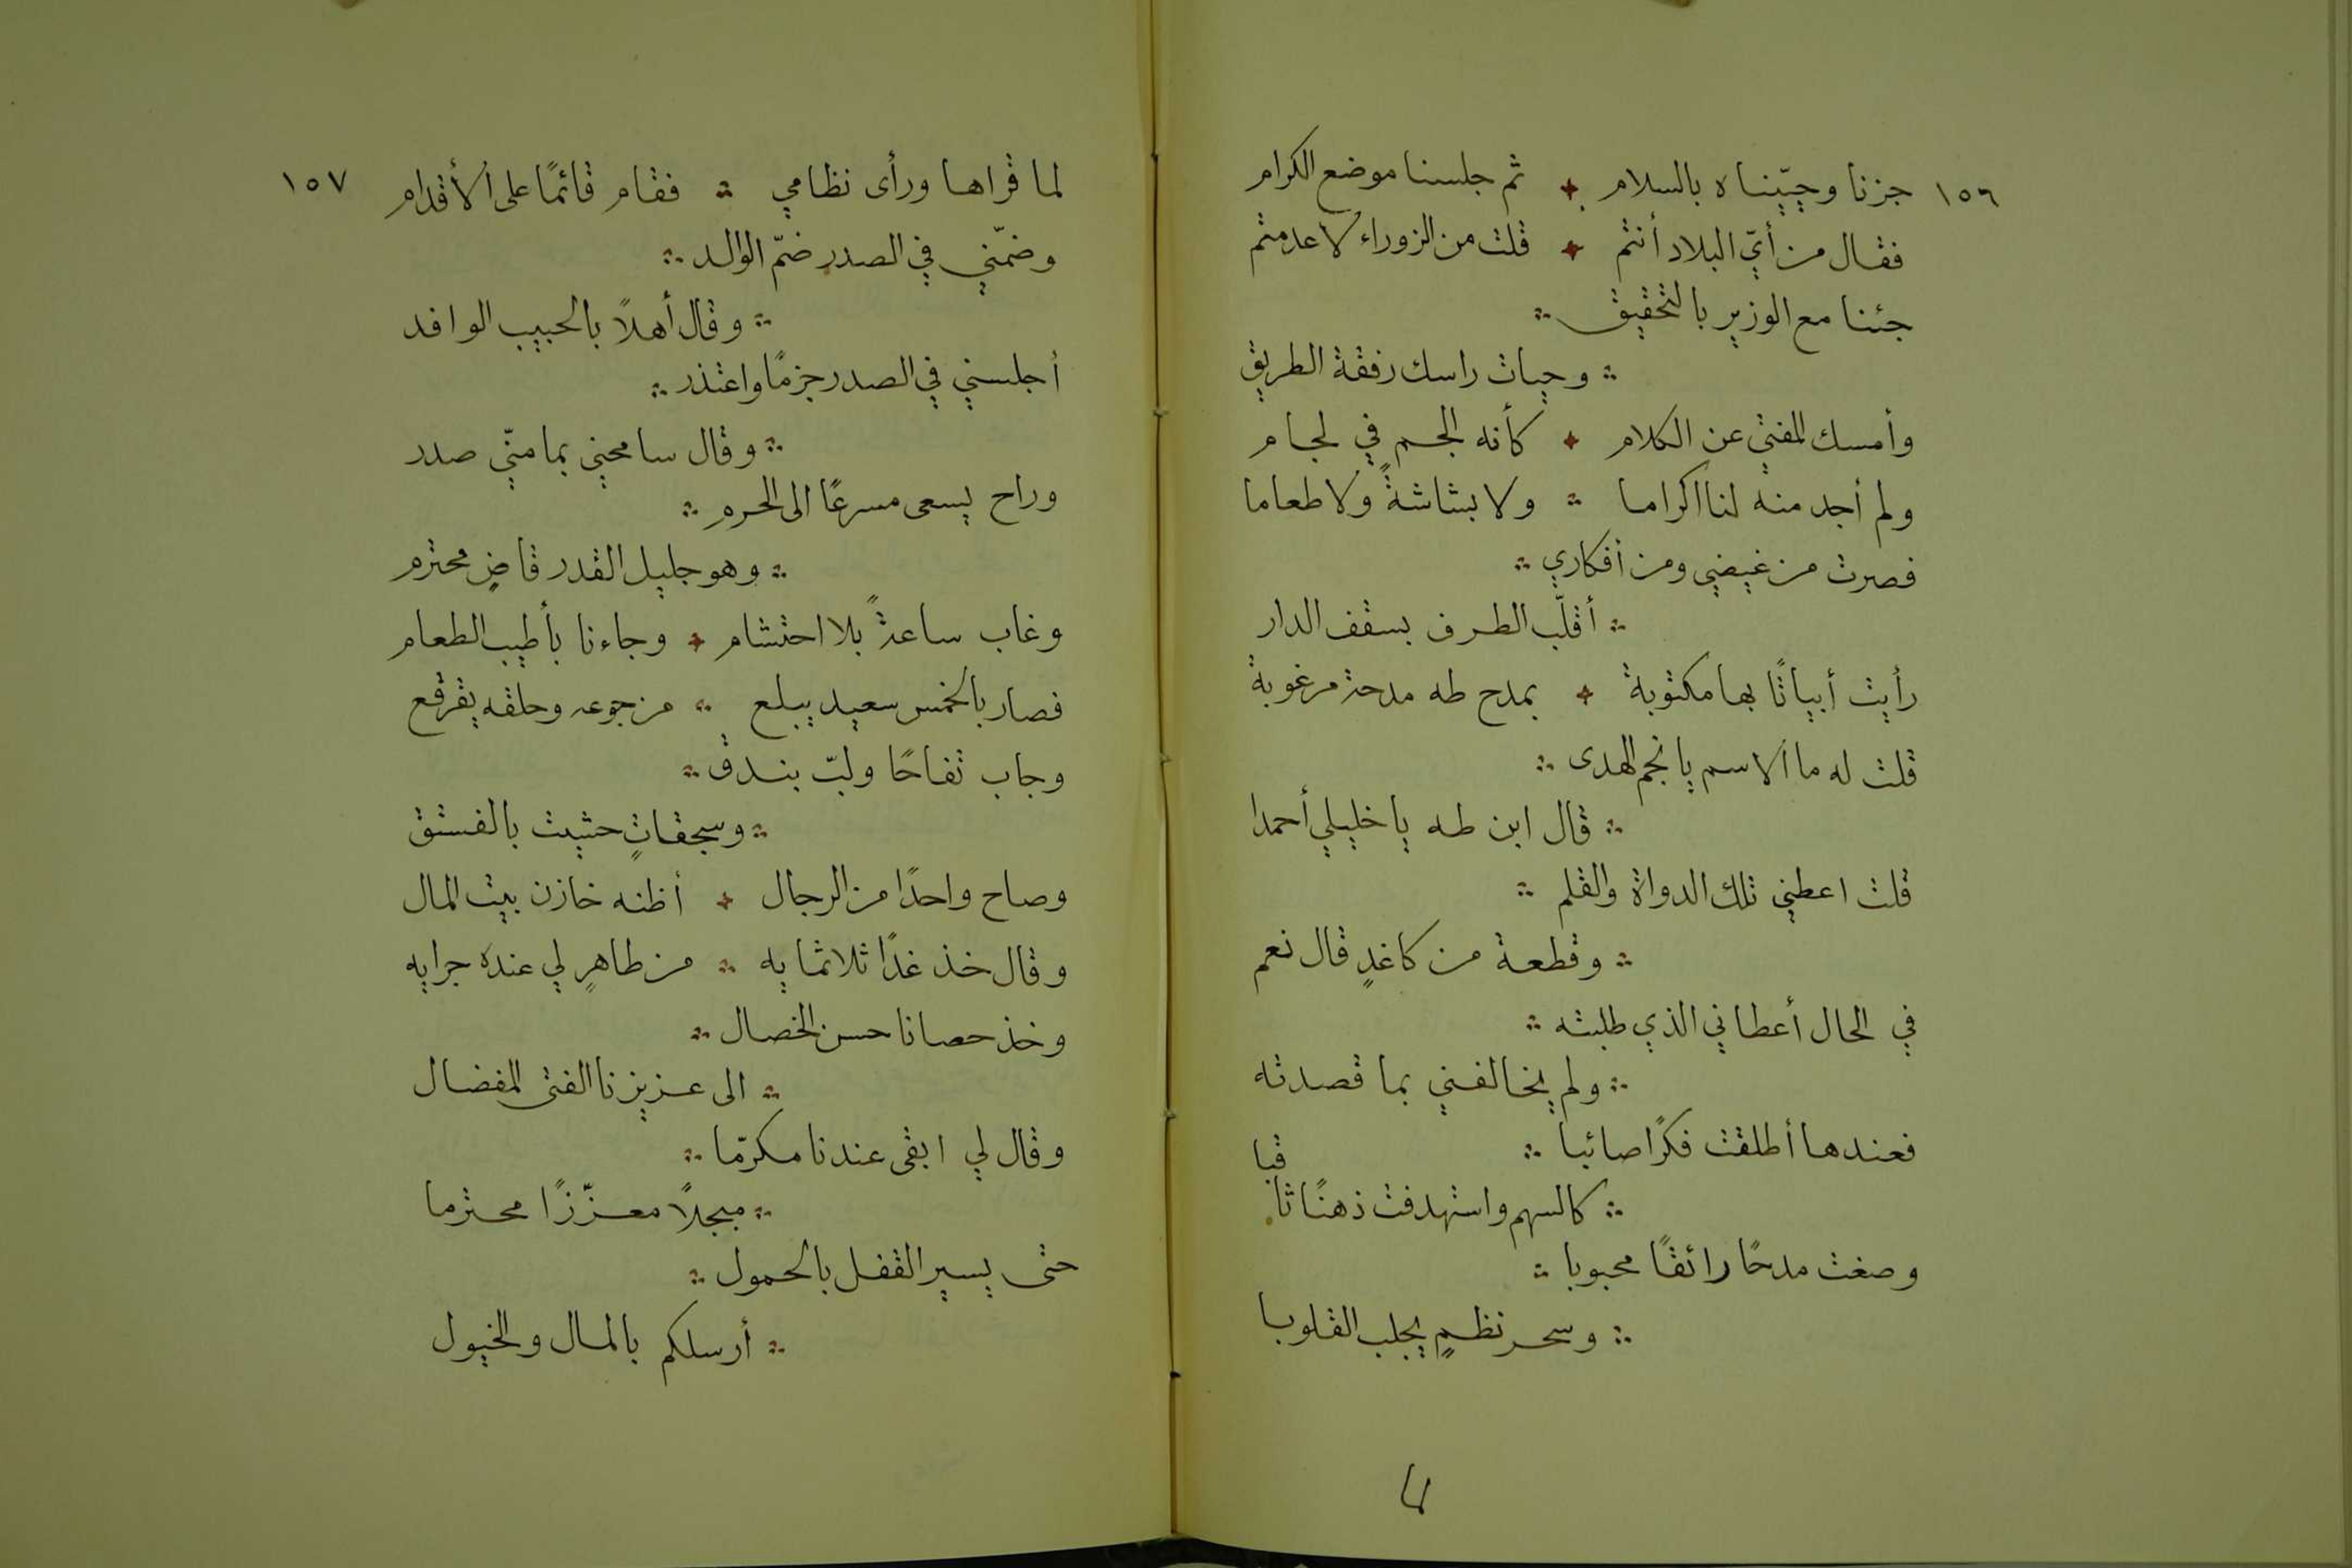 ١٥٦
جزنا وحيّيناه بالسلام ؞ ثم جلسنا موضع الكرام
فقال من أيّ البلاد أنتم ؞ قلت من الزوراء لا عدمتم
جئنا مع الوزير بالتحقيق ؞
؞ وحيات راسك رفقة الطريق
وأمسك المفتي عن الكلام ؞ كأنه الجم في لجام
ولم أجد منه لنا اكراما ؞ ولا بشاشةً ولا طعاما
فصرت من غيضي ومن أفكاري ؞
؞ أقلّب الطرف بسقف الدار
رأيت أبياتًا بها مكتوبة ؞ بمدح طه مدحة مرغوبة
قلت له ما الاسم يا نجم الهدى ؞
؞ قال ابن طه يا خليلي أحمدا
قلت اعطني تلك الدواة والقلم ؞
؞ وقطعة من كاغدٍ قال نعم
في الحال أعطاني الذي طلبته ؞
؞ ولم يخالفني بما قصدته
فعندها أطلقت فكرًا صائبا ؞
؞ كالسهم واستهدفت ذهنًا ثاقبا
وصغت مدحًا رائقًا محبوبا ؞
؞ وسحر نظمٍ يجلب القلوبا
لما
١٥٧
لما قراها ورأى نظامي ؞ فقام قائمًا على الأقدام
وضمّني في الصدر ضمّ الوالد ؞
؞ وقال أهلاً بالحبيب الوافد
أجلسني في الصدر جزمًا واعتذر ؞
؞ وقال سامحني بما منّي صدر
وراح يسعى مسرعًا الى الحرم ؞
؞ وهو جليل القدر قاضٍ محترم
وغاب ساعةً بلا احتشام ؞ وجاءنا بأطيب الطعام
فصار بالخمس سعيد يبلع ؞ من جوعه وحلقه يقرقع
وجاب تفاحًا ولبّ بندق ؞
؞ وسجقاتٍ حشيت بالفستق
وصاح واحدًا من الرجال ؞ أظنه خازن بيت المال
وقال خذ غدًا ثلاثمايه ؞ من طاهرٍ لي عنده جرايه
وخذ حصانا حسن الخصال ؞
؞ الى عزيزنا الفتى المفضال
وقال لي ابقى عندنا مكرّما ؞
؞ مبجلاً معزّزًا محترما
حتى يسير القفل بالحمول ؞
؞ أرسلكم بالمال والخيول